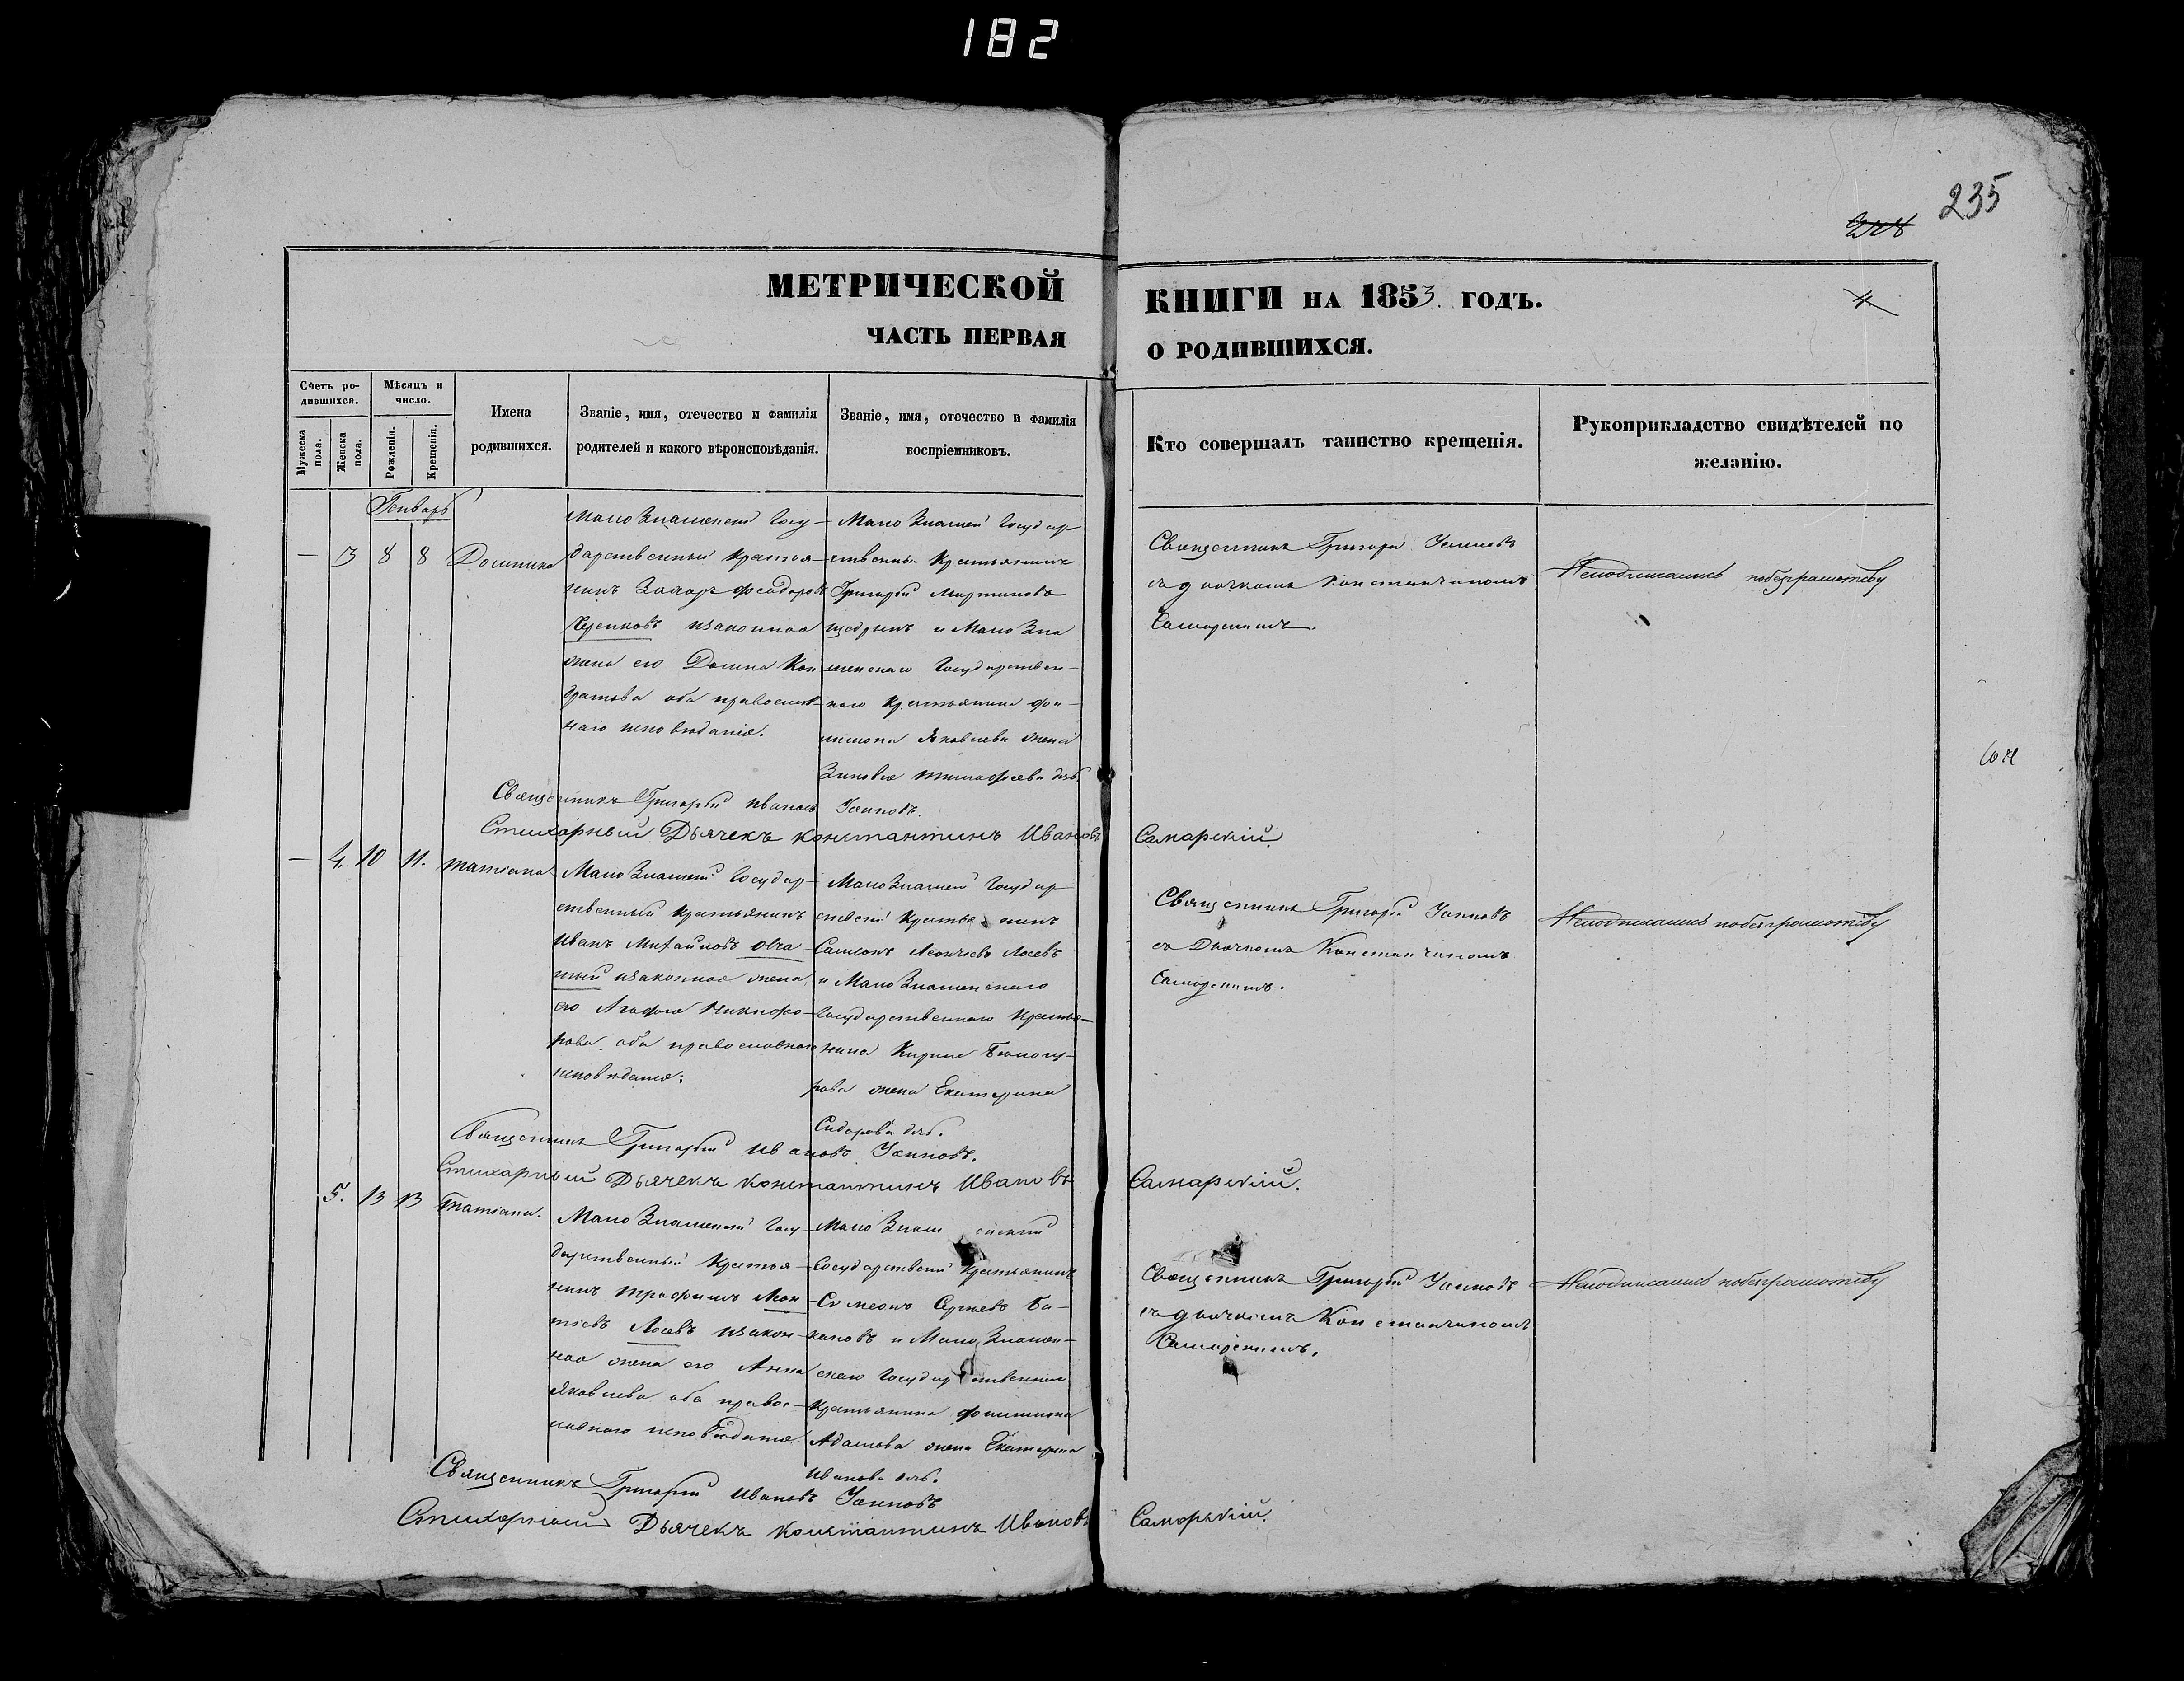 182
235
МЕТРИЧЕСКОЙ КНИГИ НА 1853 ГОДЪ.
ЧАСТЬ ПЕРВАЯ О РОДИВШИХСЯ.
Счетъ родившихся.
Мужеска пола.
Женска пола.
Мѣсяцъ и число.
Рожденія.
Крещенія.
Имена родившихся.
Званіе, имя, отечество и фамилія родителей и какого вѣроисповѣданія.
Званіе, имя, отечество и фамилія воспріемниковъ.
Кто совершалъ таинство крещенія.
Рукоприкладство свидѣтелей по желанію.
Генварь
— 3 8 8 Домника
Мало Знаменск Госу-
дарственный Крестья-
нинъ Захаръ Феодоровъ
изаконная
жена его Домна Кон
дратова оба православ-
наго исповѣданія.
Мало Знамен Государ-
ственны Крестьянинъ
Григорій Мартиновъ
щедринъ и Мало Зна
менскаго Государствен-
наго Крестьянина Фи-
лимона Яковлева жена
Зиновія Тимофеева дочь
Священникъ Григорій
съ дьячкомъ Константиномъ
Самарскимъ.
Неподписались побезграмотству
Священникъ Григорій Ивановъ
Стихарный Дьячекъ Константинъ Ивановъ Самарскій.
— 4. 10 11. Татіана
Мало Знаменс Государ-
ственный Крестьянинъ
Иванъ Михайловъ Овча-
ный изаконная жена
его Агафія Никифо-
рова оба православнаго
исповѣданія;
Мало Знамен Государ-
ствен Крестьянинъ
Самсонъ Леонтіевъ Лосевъ
и Мало Знаменскаго
Государственнаго Крестья-
нина Кирила
жена Екатерина
Сидорова
Священникъ Григорій
съ Дьячкомъ Константиномъ
Самарскимъ.
Неподписались побезграмотству
Священникъ Григорій Ивановъ
Стихарный Дьячекъ Константинъ Ивановъ Самарскій.
5. 13 13 Татіана.
Мало Знаменской Госу-
дарственный Крестья-
нинъ Трофимъ Леон-
тіевъ Лосевъ изакон-
ная жена его Анна
Яковлева оба правос-
лавнаго исповѣданія
Мало Знаменский
Государствен Крестьянинъ
Симеонъ Сергіевъ Ба-
кановъ и Мало Знамен-
скаго Государственнаго
Крестьянина Филимона
Адамова жена Екатерина
Иванова
Священникъ Григорій
съ дьячкомъ Константиномъ
Самарскимъ.
Неподписались побезграмотству
Священникъ Григорій Ивановъ
Стихарный Дьячекъ Константинъ Ивановъ Самарскій.